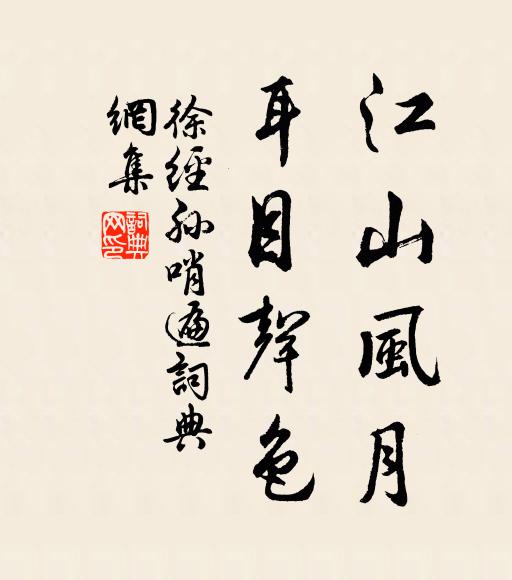 江山風月
耳目聲色
徐經孫哨遍詞典
網集
詞典網印